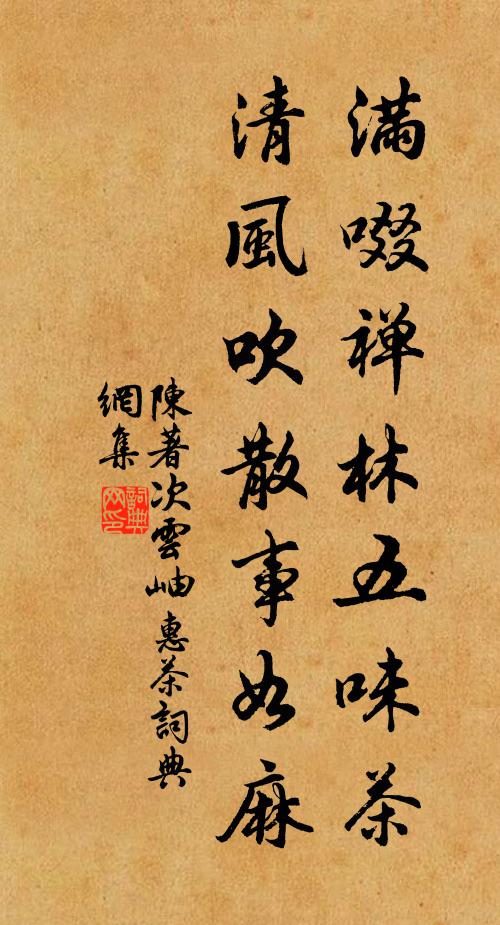 滿啜禅林五味茶
清風吹散事如麻
陳著次雲岫惠茶詞典
網集
詞典网印